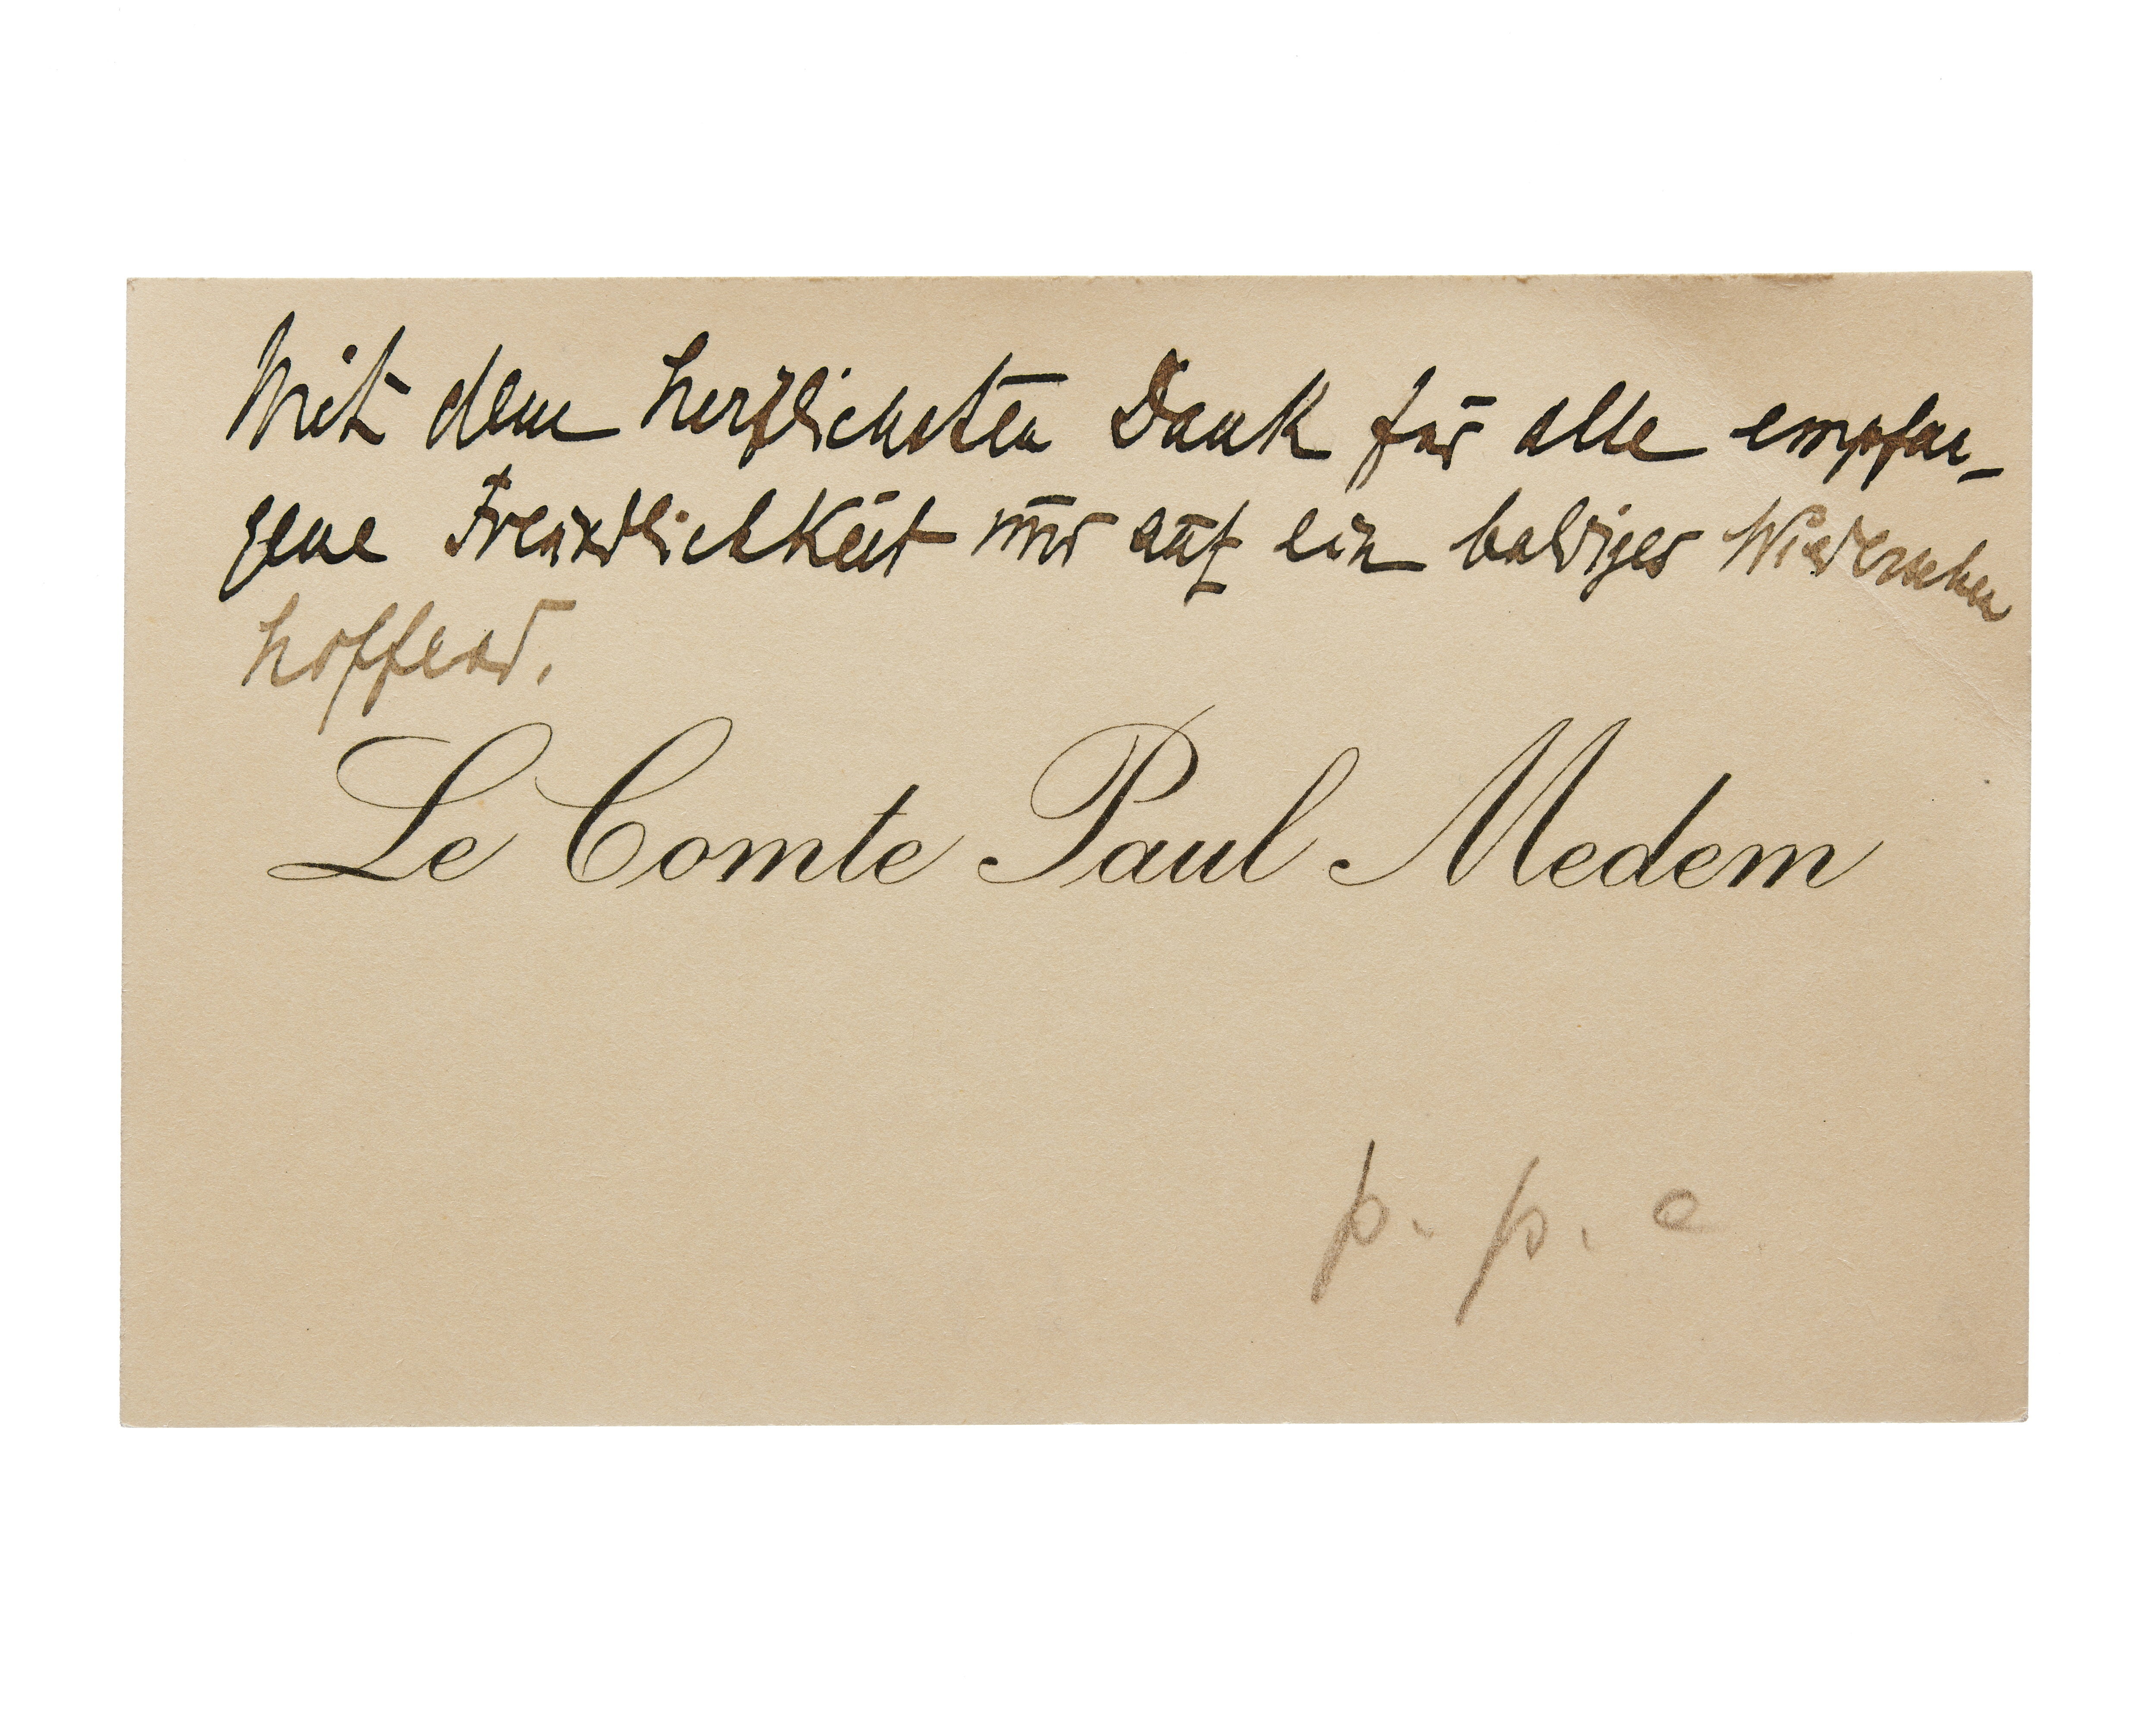 Mit dem herzlichsten Dank für alle empfan-
gene Freundlichkeit und auf ein baldiges Wiedersehen
hoffend.
Le Comte Paul Medem
p. p. c